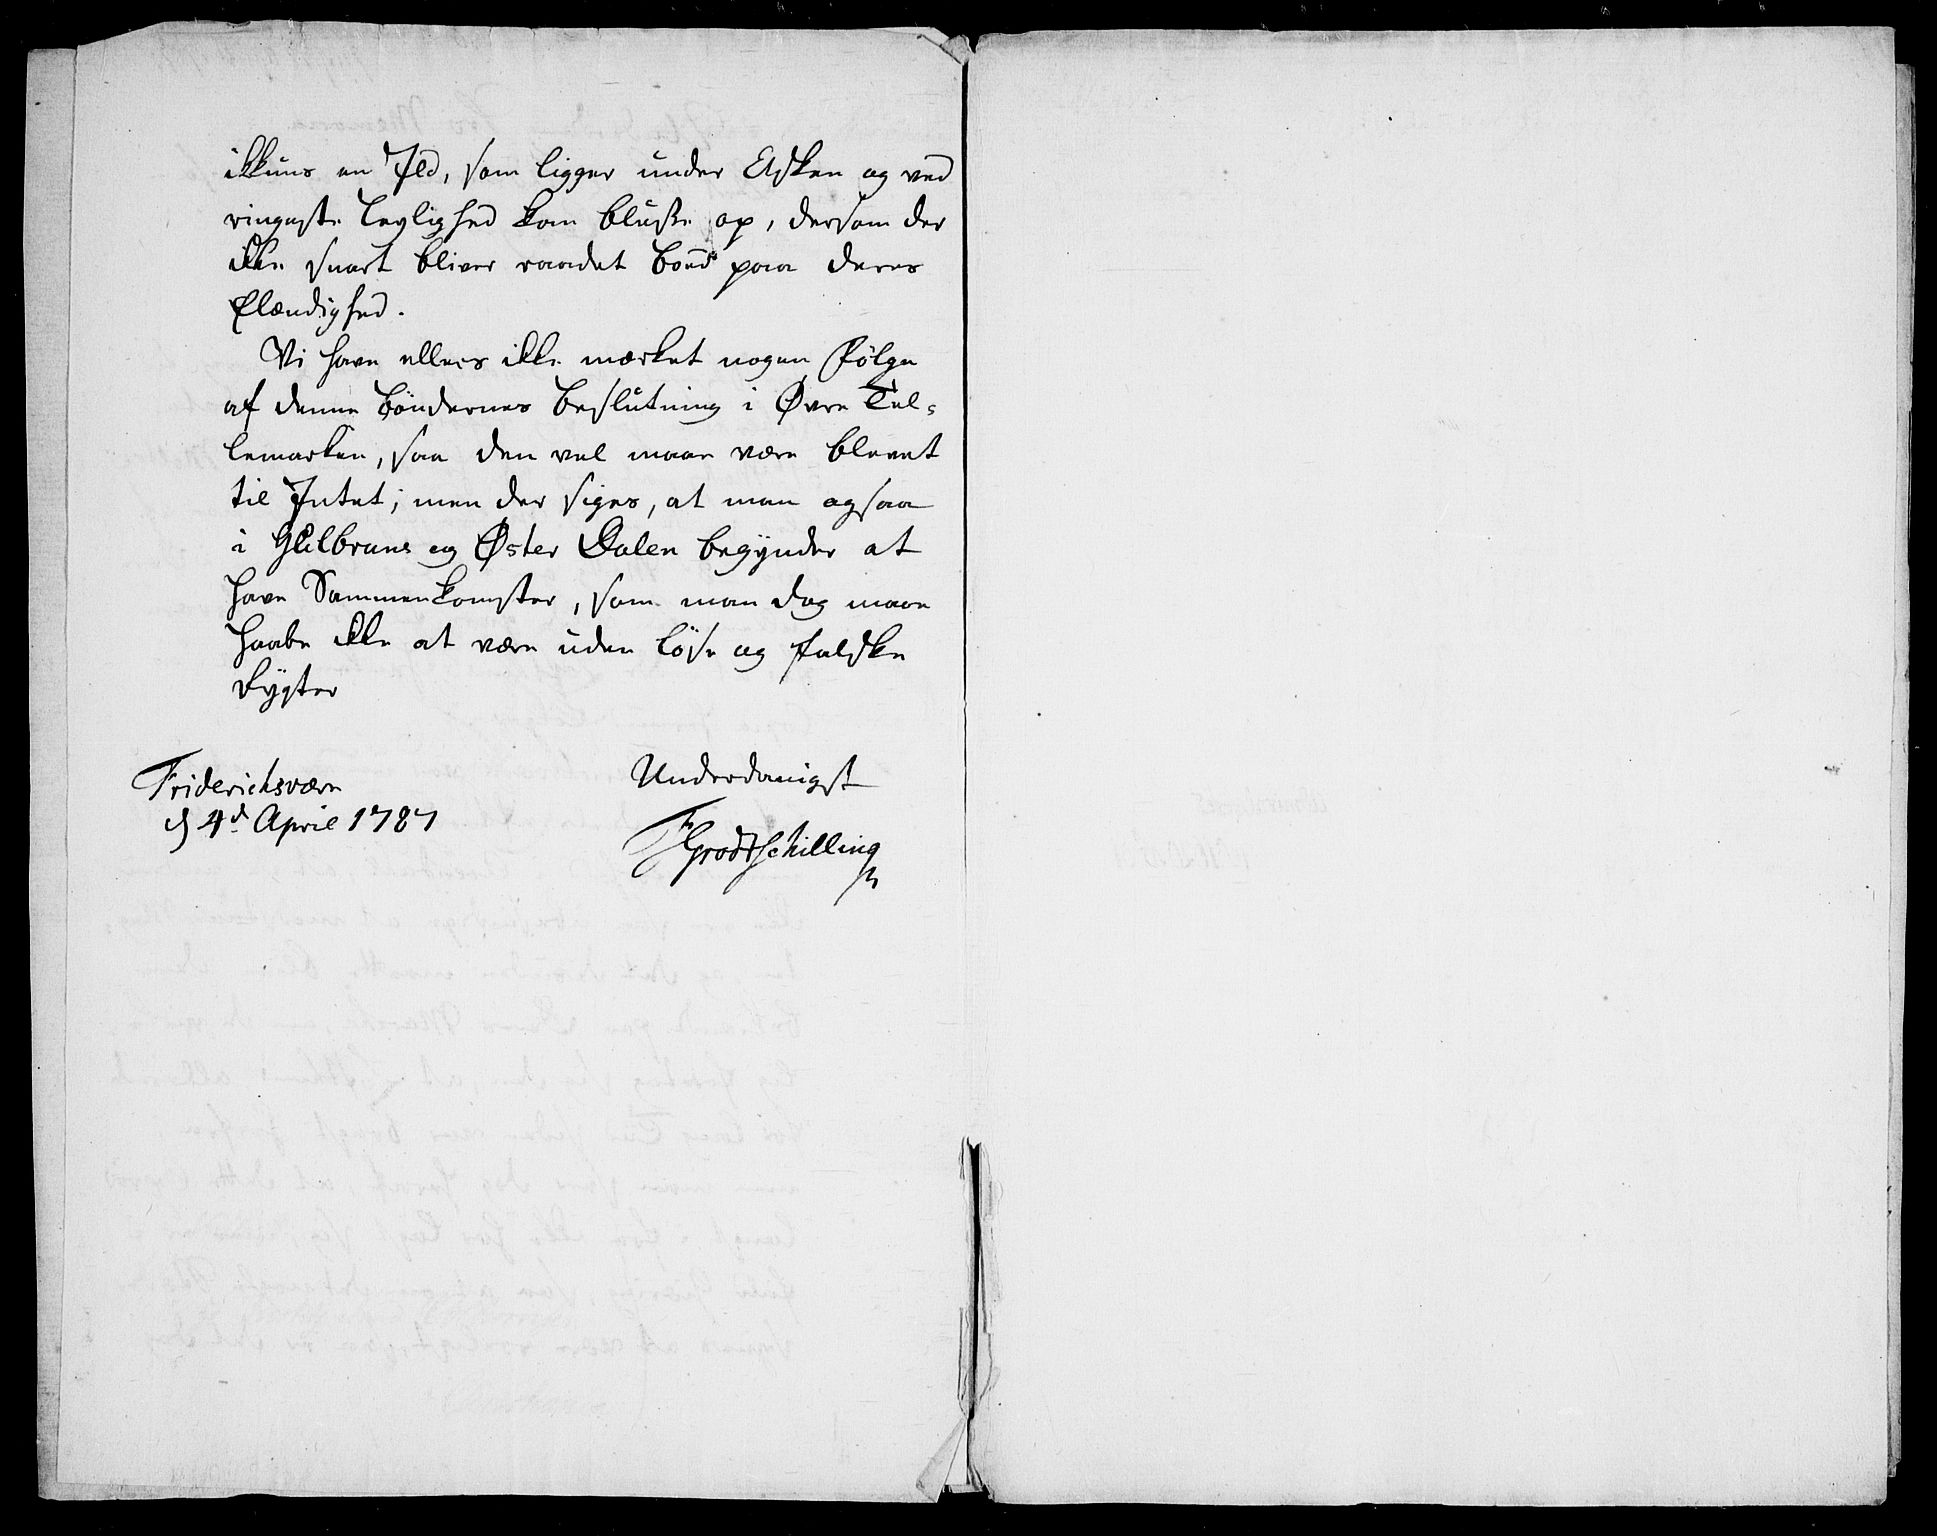 ikkuns en Ild, som ligger under Asken og ved
ringeste Leylighed kan blusse op, dersom der
ikke snart bliver raadet bood paa deres
Elændighed.
Vi have ellers ikke mærket nogen Følge
af denne Böndernes Beslutning i Øvre Tel-
lemarken, saa den vel maae være blevet
til Intet; men der siges, at man ogsaa
i Gulbrans og Øster Dalen begÿnder at
have Sammenkomster, som man dog maae
haabe ikke at være uden löse og falske
Rÿgter
Friderichsværn
d 4d. April 1787
Underdanigst
FGrodtschilling